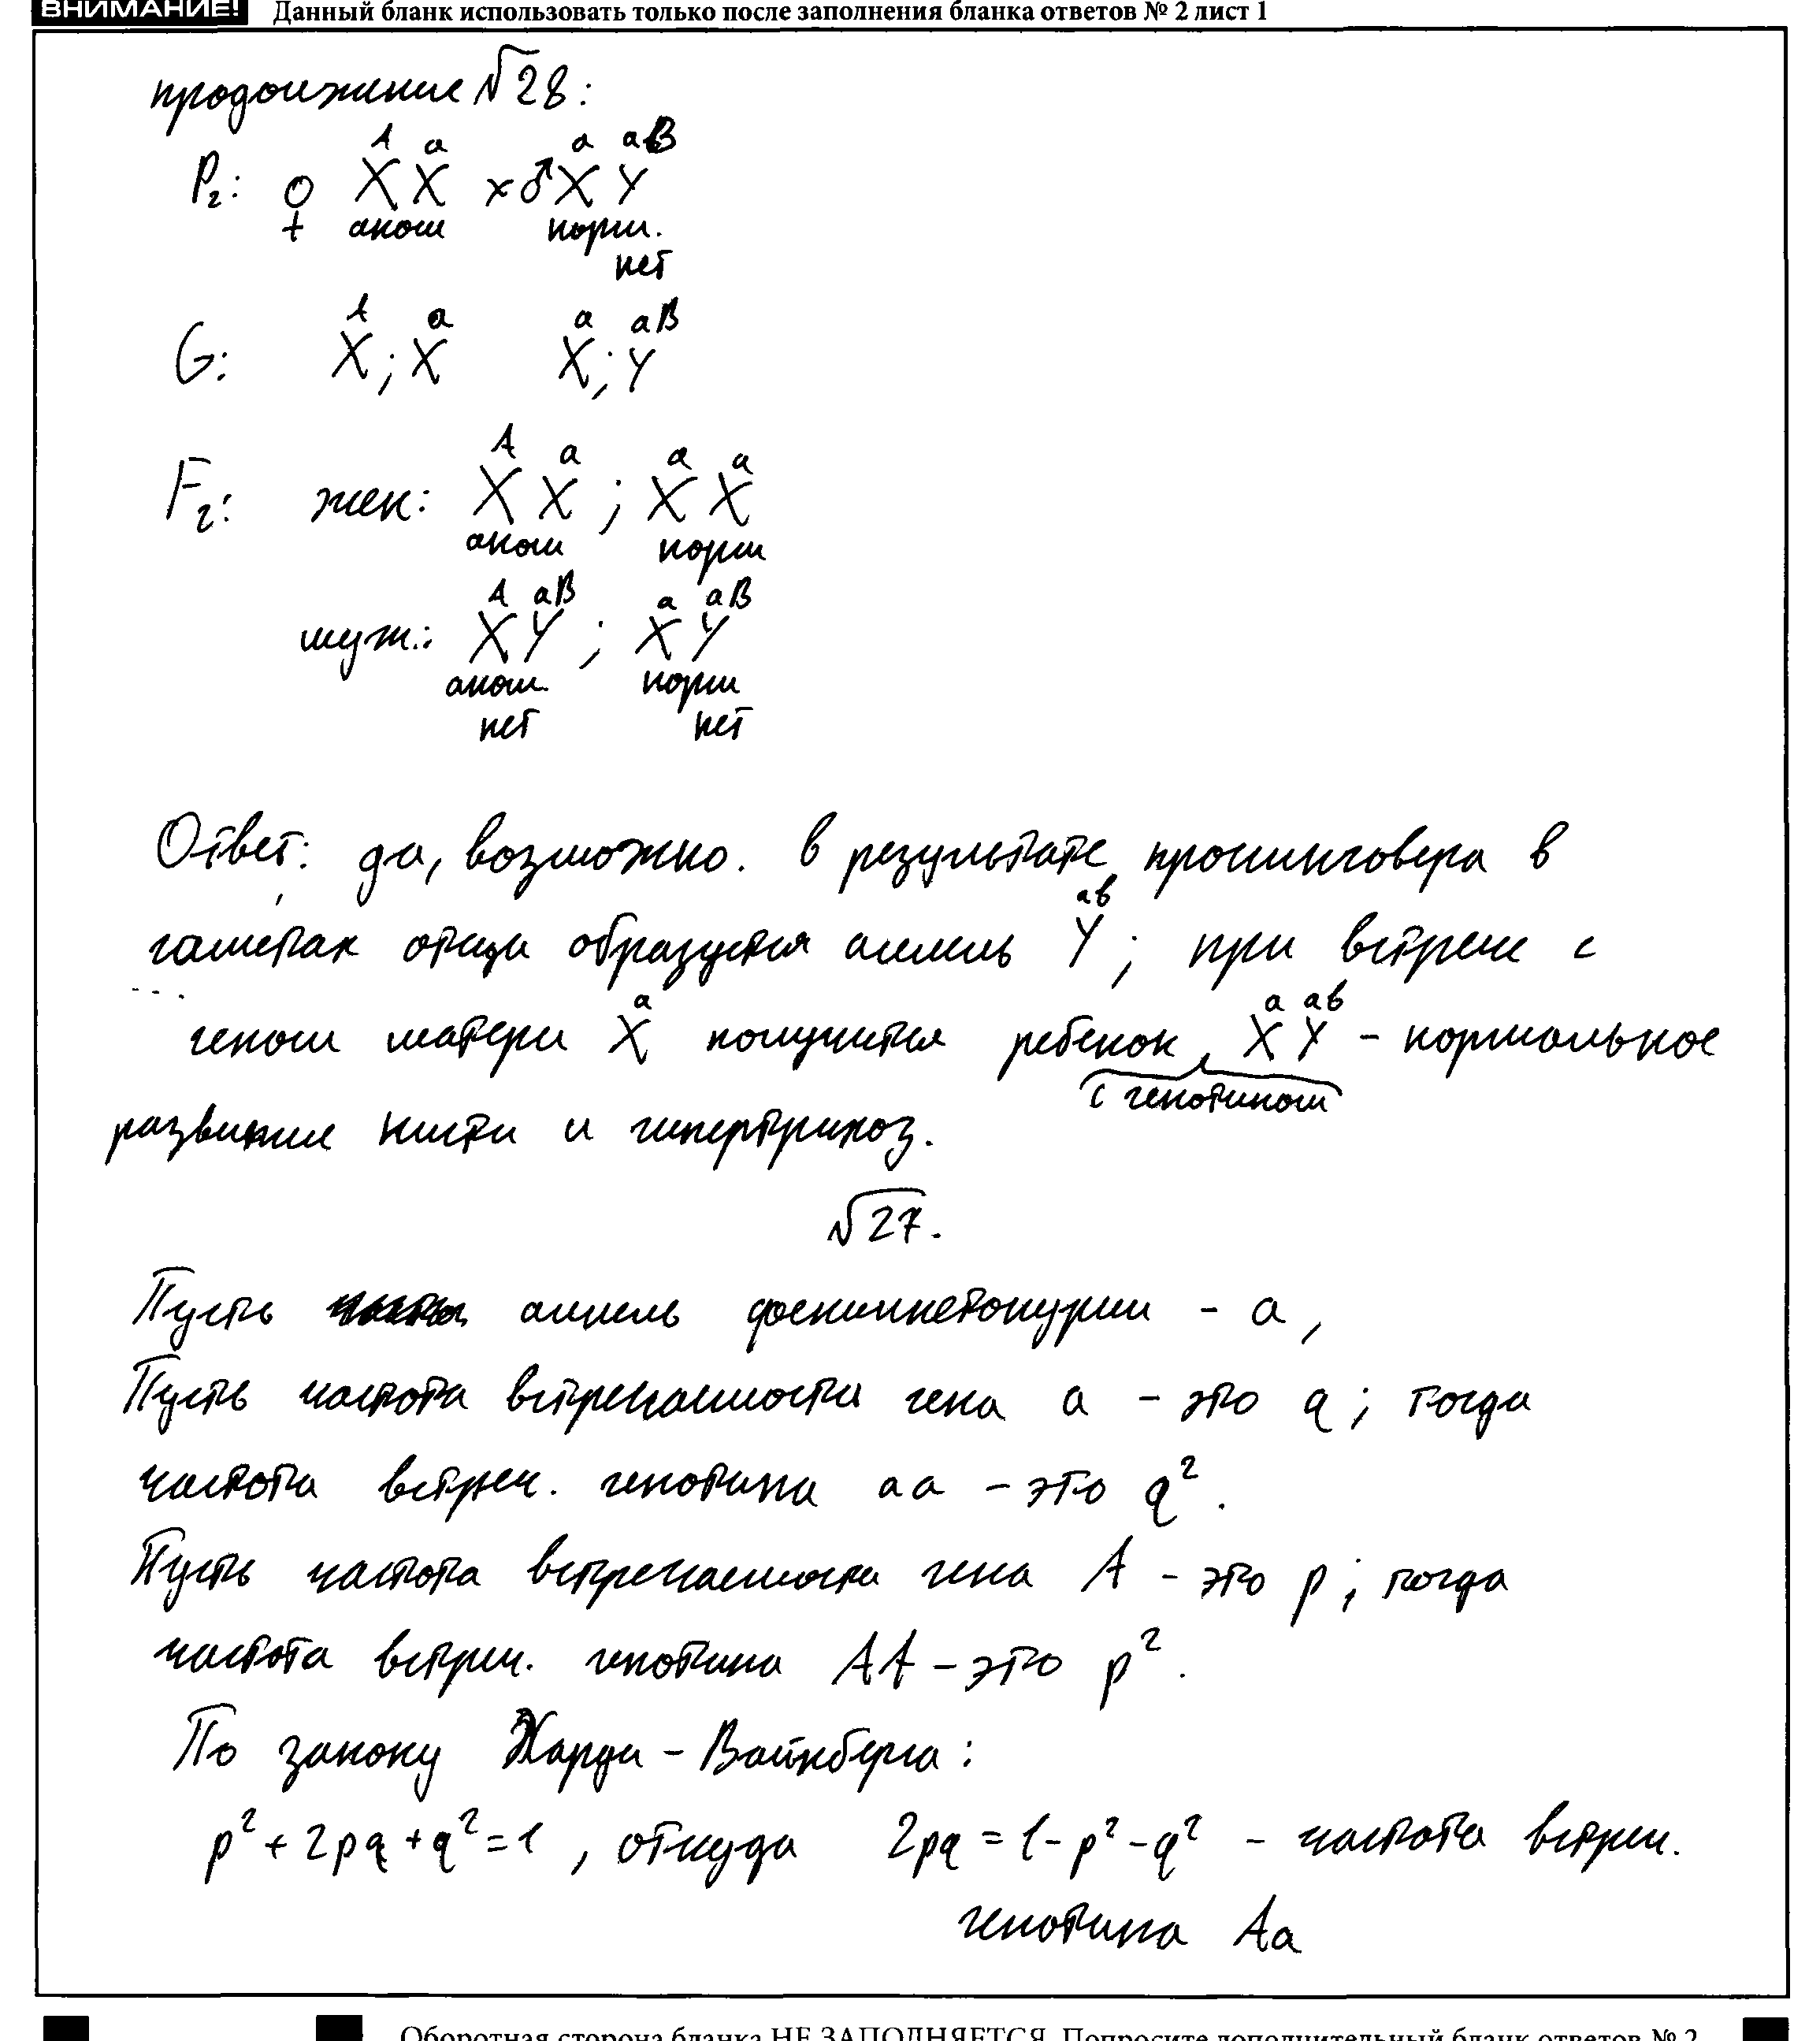 ВНИМАНИЕ! Данный бланк использовать только после заполнения бланка ответов № 2 лист 1
продолжение №28:
P₂: ♀ Xᴬ Xᵃ x ♂ Xᵃ Yᵃᴮ
аном норм.
нет
G: Xᴬ; Xᵃ Xᵃ; Yᵃᴮ
F₂: жен: Xᴬ Xᵃ ; Xᵃ Xᵃ
аном норм
муж.: Xᴬ Yᵃᴮ ; Xᵃ Yᵃᴮ
аном. норм
нет нет
Ответ: да, возможно. в результате кроссинговера в
гаметах отца образуется аллель Yᵃᵇ; при встрече с
геном матери Xᵃ получится ребенок, Xᵃ Yᵃᵇ - нормальное
с генотипом
развитие кисти и гипертрихоз.
№27.
Пусть аллель фенилкетонурии - a,
Пусть частота встречаемости гена a - это q; тогда
частота встреч. генотипа aa - это q².
Пусть частота встречаемости гена A - это p; тогда
частота встреч. генотипа AA - это p².
По закону Харди - Вайнберга:
p² + 2pq + q² = 1, откуда 2pq = 1 - p² - q² - частота встреч.
генотипа Aa
Оборотная сторона бланка НЕ ЗАПОЛНЯЕТСЯ. Попросите дополнительный бланк ответов № 2